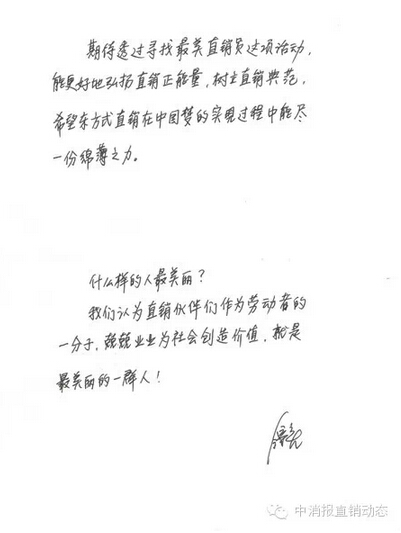 期待透过寻找最美直销员这项活动,
能更好地弘扬直销正能量,树立直销典范,
希望东方式直销在中国梦的实现过程中能尽
一份绵薄之力。
什么样的人最美丽?
我们认为直销伙伴们作为劳动者的
一分子,兢兢业业为社会创造价值,就是
最美丽的一群人!
中消报直销动态